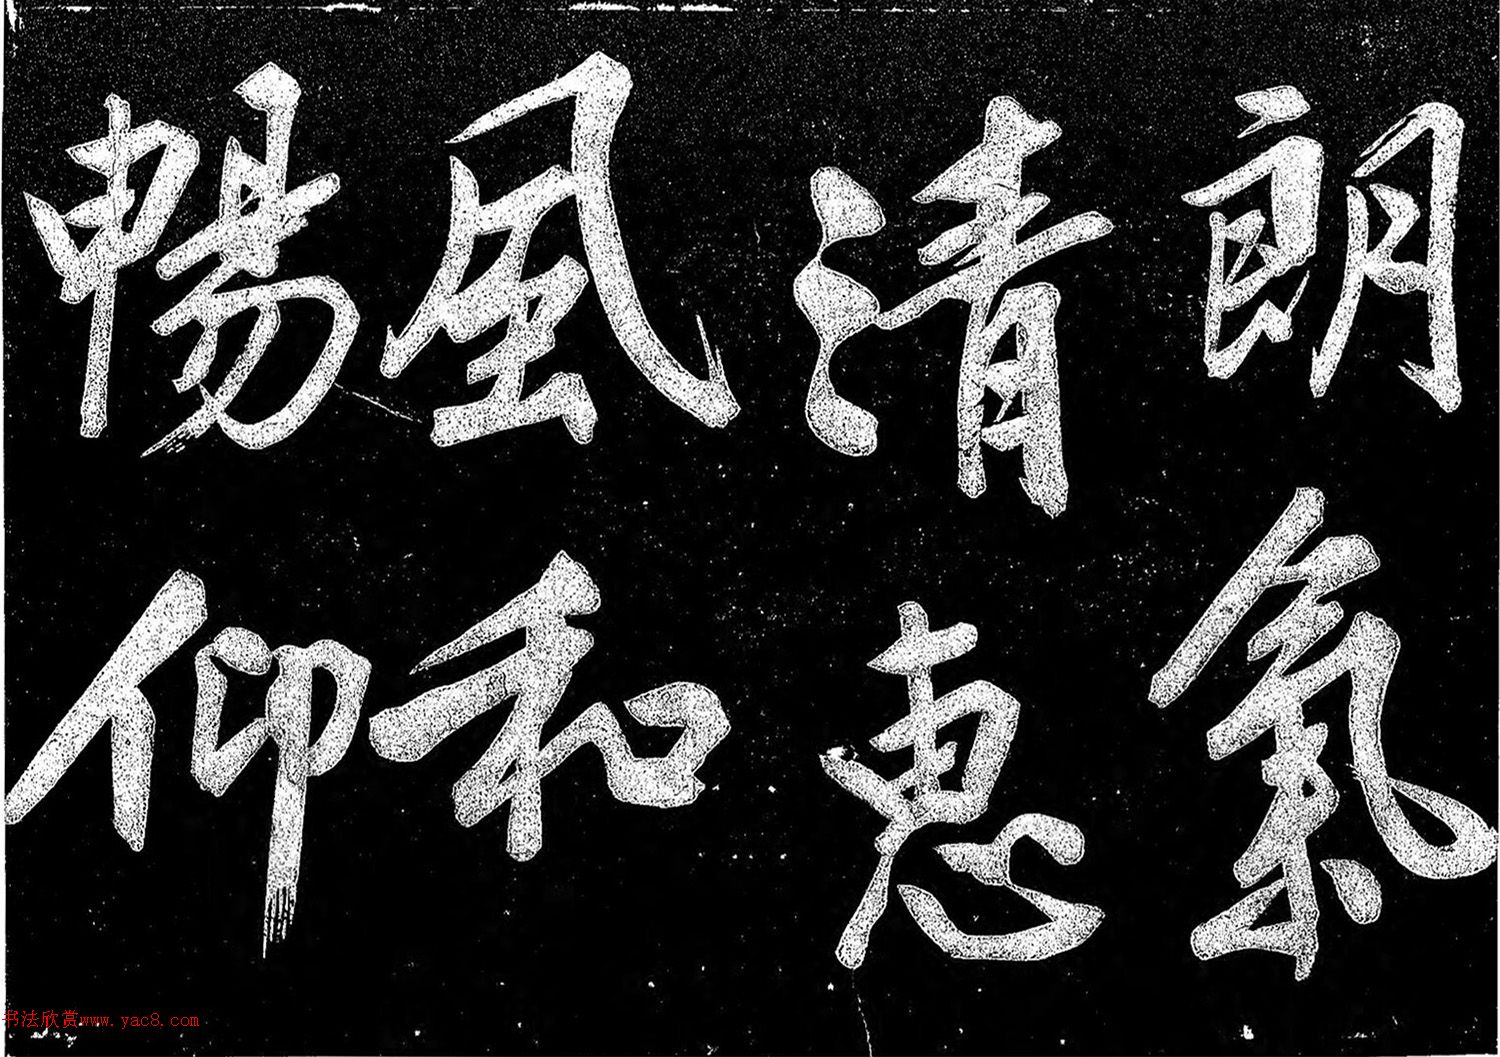 朗氣
清惠
風和
暢仰
书法欣赏www.yac8.com